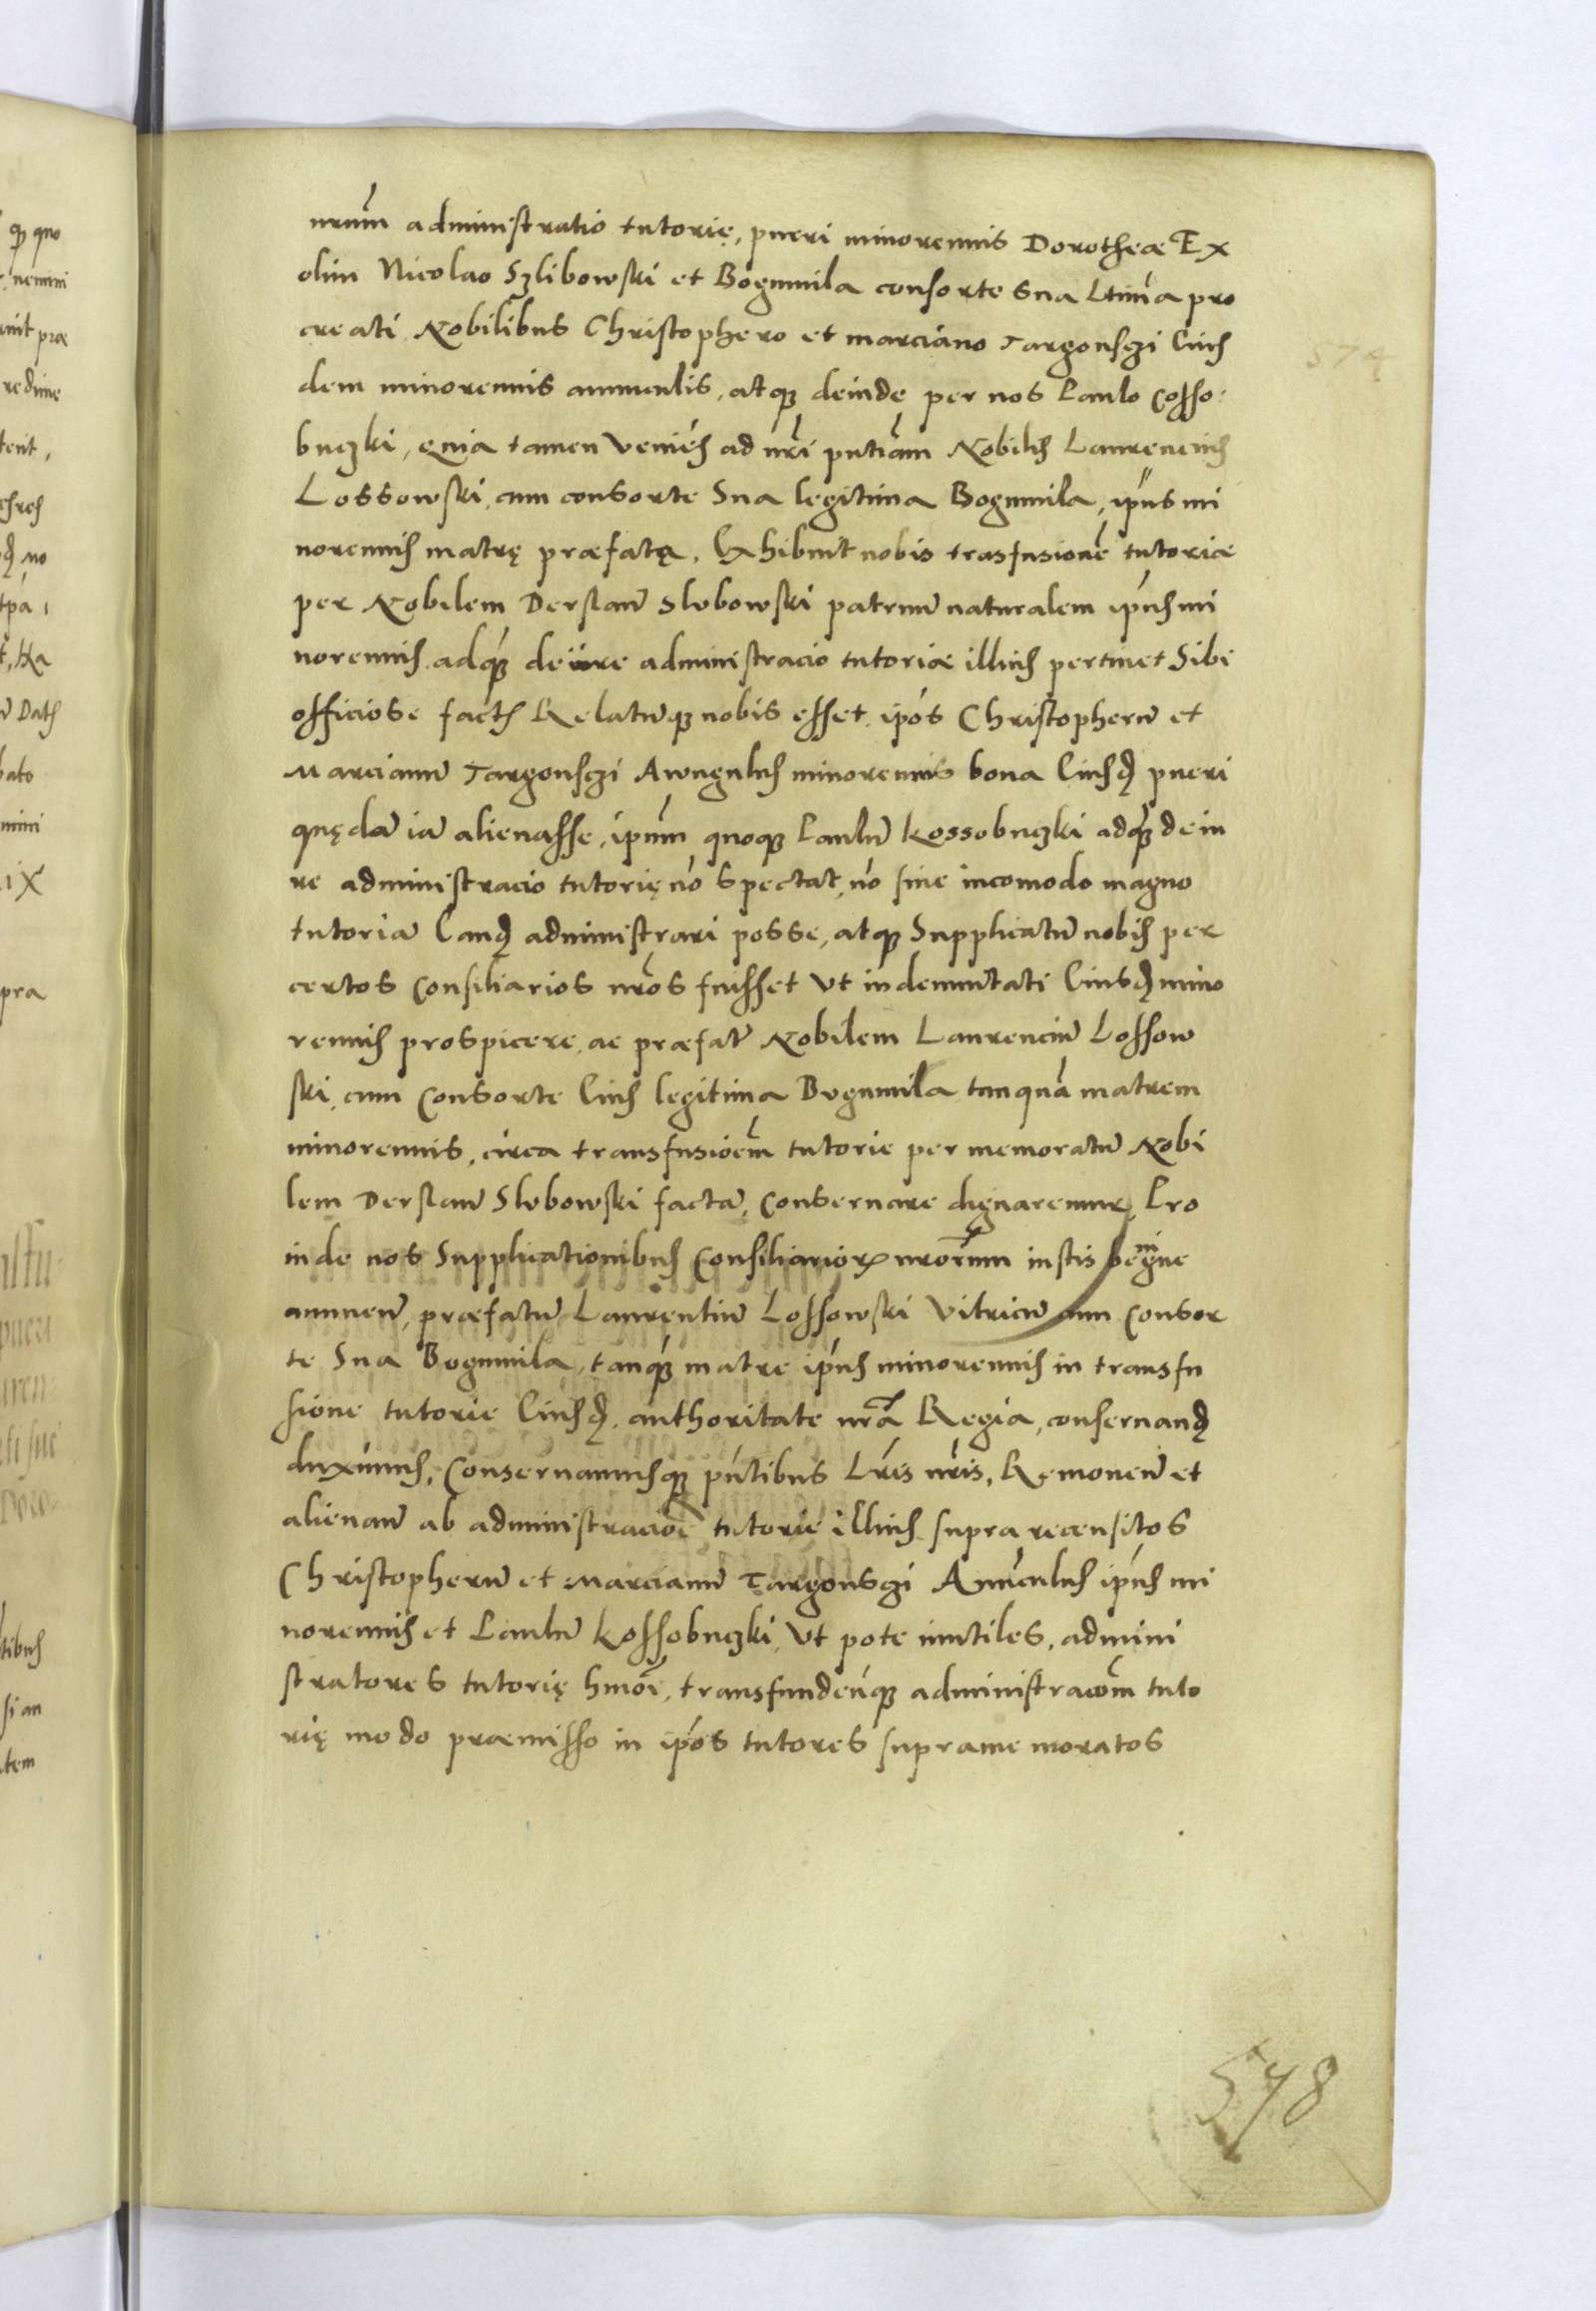 nrum administratio tutorię, pueri minorennis Dorotheæ Ex
olim Nicolao Szlibowski et Bogumila consorte sua Ltima pro
creati Nobilibus Christophero et marciano Targonsczi Eius
dem minorennis auunculis, atque deinde per nos Paulo Cosso
buczki, quia tamen veniens ad nri pntiam Nobilis Laurencius
Lossowski cum consorte Sua legitima Bogumila, ipius mi
norennis matrę præfata. Exhibuit nobis trasfusionē tutoriæ
per Nobilem Derslaum Slubowski patruum naturalem ipius mi
norennis adque de iure administracio tutoriæ illius pertinet Sibi
officiose factas Relatumque nobis esset ipos Christopherum et
Marcianum Targonsczi Awngulus minorennis bona Eiusdem pueri
quędam iam alienasse, ipum quoque Paulum Kossobuczki adque de iu
re administracio tutorię nō spectat, nō sine incomodo magno
tutoriam Eandem administrari posse, atque Supplicatum nobis per
certos Consiliarios nros fuisset vt indemnitati Eiusdem mino
rennis prospicere, ac præfatum Nobilem Laurencium Lossow
ski, cum Consorte Eius legitima Bogumila tanquā matrem
minorennis, circa transfusioem tutorie per memoratum Nobi
lem Derslaum Slubowski factam, Conservare dignaremur, Pro
inde nos Supplicationibus Consiliariorum nrorum iustis benigne
annuen, præfatum Laurentium Lossowski vitricum cum Consor
te Sua Bogumila, tanque matre ipius minorennis in transfu
sione tutorie Eiusdem, authoritate nra Regia, conservand
duximus, Conservamusque pntibus Lris nris, Remouen et
alienan ab administracioe tutorie illius supra recensitos
Christopherum et Marcianum Targonsczi Auunculus ipius mi
norennis et Paulum Kossobuczki, Vt pote inutiles, admini
stratores tutorię hmoi, transfundenque administracom tuto
rię modo præmisso in ipos tutores supramemoratos
574
578